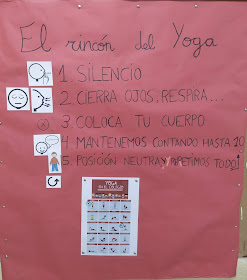 El rincón del Yoga
1. SILENCIO
2. CIERRA OJOS, RESPIRA...
3. COLOCA TU CUERPO
4. MANTENEMOS CONTANDO HASTA 10
5. POSICIÓN NEUTRA Y REPETIMOS TODO!
YOGA